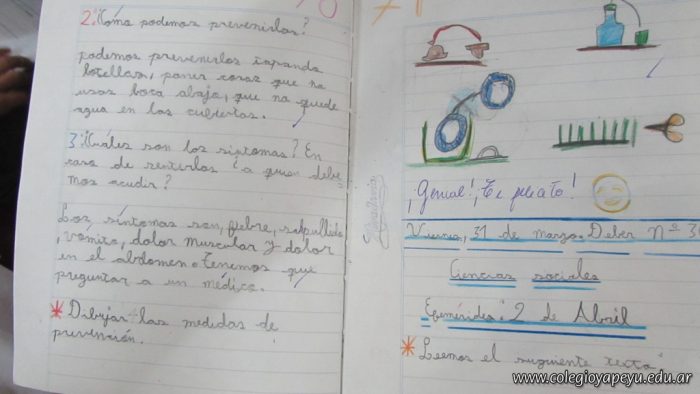 2: ¿Cómo podemos prevenirlos?
podemos prevenirlos tapando
botellas, poner cosas que no
usas boca abajo, que no quede
agua en las cubiertas.
3: ¿Cuáles son los síptomas? En
caso de sentirlos ¿a quien debe
mos acudir?
Los síntomas son, fiebre, salpullido
, vómito, dolor muscular y dolor
en el abdomen. tenemos que
preguntar a un médico.
* Dibujar las medidas de
prevención.
¡Genial!, ¡Te felicito!
Viernes, 31 de marzo. Deber Nº 30
Ciencias sociales
Efemérides: 2 de Abril
* Leemos el siguiente texto
www.colegioyapeyu.edu.ar